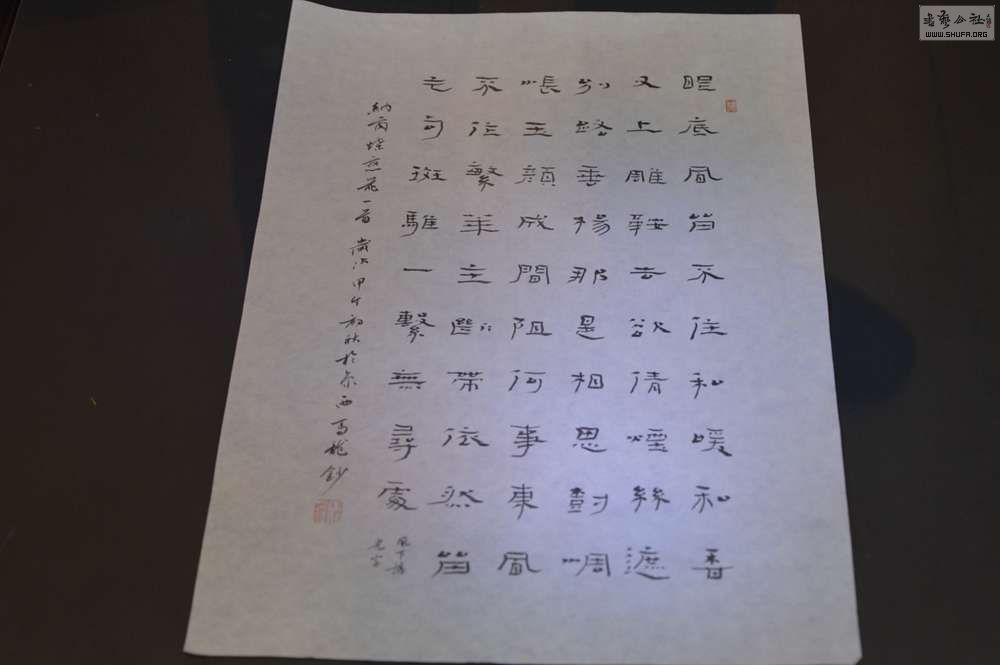 眼底風留不住和暖和香
又上雕鞍去欲倩煙絲遮
別路垂楊那是相思樹惆
悵玉顏成間阻何事東風
不作繁華主斷帶依然留
乞句斑騅一繫無尋處
風下落
光字
納蘭蝶戀花一首 歲次甲午初秋於京西馬龍鈔
书艺公社
WWW.SHUFA.ORG